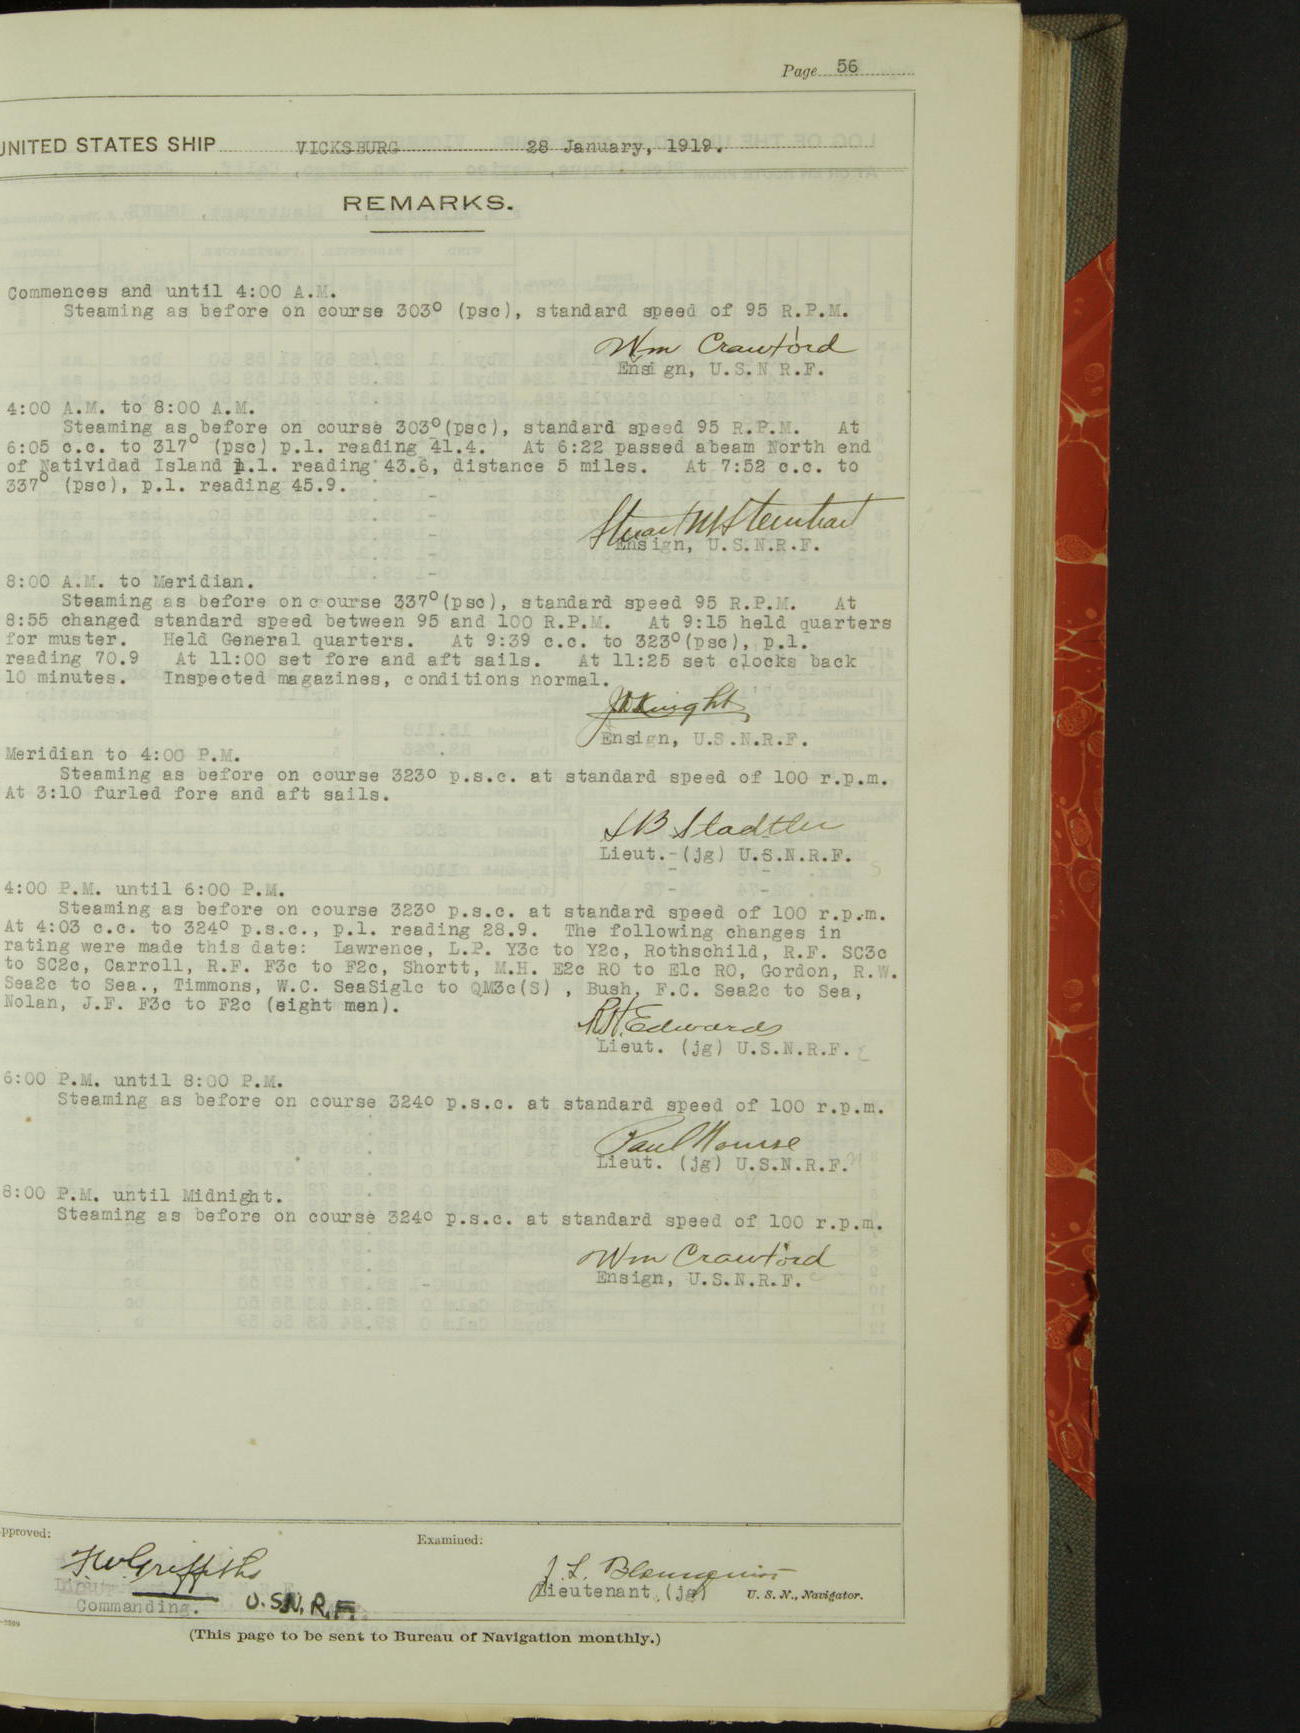 Page 56
UNITED STATES SHIP VICKSBURG 28 January, 1919.
REMARKS.
Commences and until 4:00 A.M.
Steaming as before on course 303° (psc), standard speed of 95 R.P.M.
Wm Crawford
Ensign, U.S.N R.F.
4:00 A.M. to 8:00 A.M.
Steaming as before on course 303°(psc), standard speed 95 R.P.M. At
6:05 c.c. to 317° (psc) p.l. reading 41.4. At 6:22 passed abeam North end
of Natividad Island p.l. reading 43.6, distance 5 miles. At 7:52 c.c. to
337° (psc), p.l. reading 45.9.
Stuart M Steinhart
Ensign, U.S.N.R.F.
8:00 A.M. to Meridian.
Steaming as before on course 337°(psc), standard speed 95 R.P.M. At
8:55 changed standard speed between 95 and 100 R.P.M. At 9:15 held quarters
for muster. Held General quarters. At 9:39 c.c. to 323°(psc), p.l.
reading 70.9 At 11:00 set fore and aft sails. At 11:25 set clocks back
10 minutes. Inspected magazines, conditions normal.
Knight
Ensign, U.S.N.R.F.
Meridian to 4:00 P.M.
Steaming as before on course 323° p.s.c. at standard speed of 100 r.p.m.
At 3:10 furled fore and aft sails.
Stadtler
Lieut.-(jg) U.S.N.R.F.
4:00 P.M. until 6:00 P.M.
Steaming as before on course 323° p.s.c. at standard speed of 100 r.p.m.
At 4:03 c.c. to 324° p.s.c., p.l. reading 28.9. The following changes in
rating were made this date: Lawrence, L.P. Y3c to Y2c, Rothschild, R.F. SC3c
to SC2c, Carroll, R.F. F3c to F2c, Shortt, M.H. E2c RO to E1c RO, Gordon, R.W.
Sea2c to Sea., Timmons, W.C. SeaSig1c to QM3c(S) , Bush, F.C. Sea2c to Sea,
Nolan, J.F. F3c to F2c (eight men).
R.H. Edwards
Lieut. (jg) U.S.N.R.F.
6:00 P.M. until 8:00 P.M.
Steaming as before on course 324° p.s.c. at standard speed of 100 r.p.m.
Paul Nourse
Lieut. (jg) U.S.N.R.F.
8:00 P.M. until Midnight.
Steaming as before on course 324° p.s.c. at standard speed of 100 r.p.m.
Wm Crawford
Ensign, U.S.N.R.F.
pproved:
Examined:
F.W. Griffiths
J. L.
Lieutenant (jg) U. S. N., Navigator.
Commanding. U.S.N.R.F.
(This page to be sent to Bureau of Navigation monthly.)